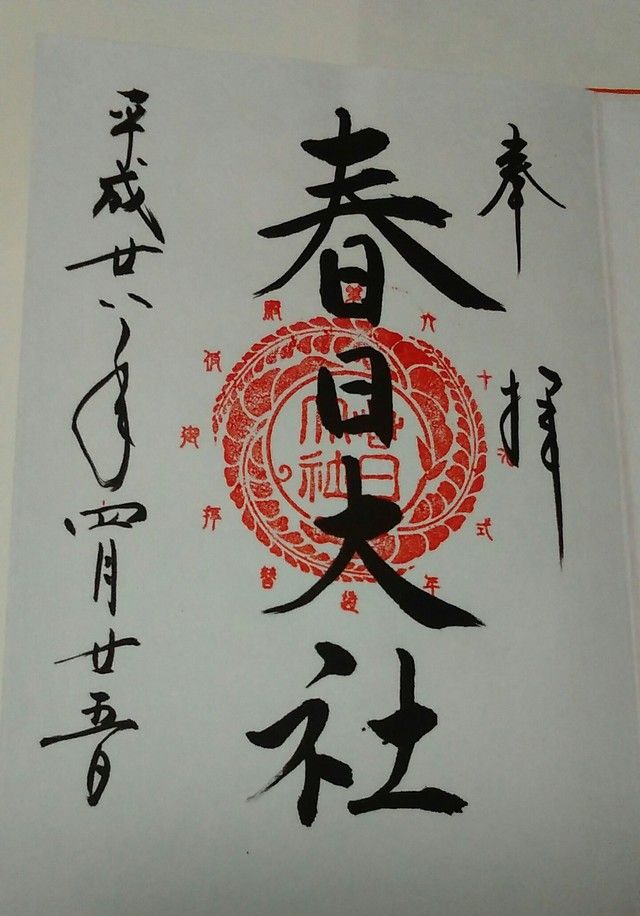 奉拝
春日大社
平成廿八年四月廿五日
第六十次式年造替
御仮殿
春日
大社